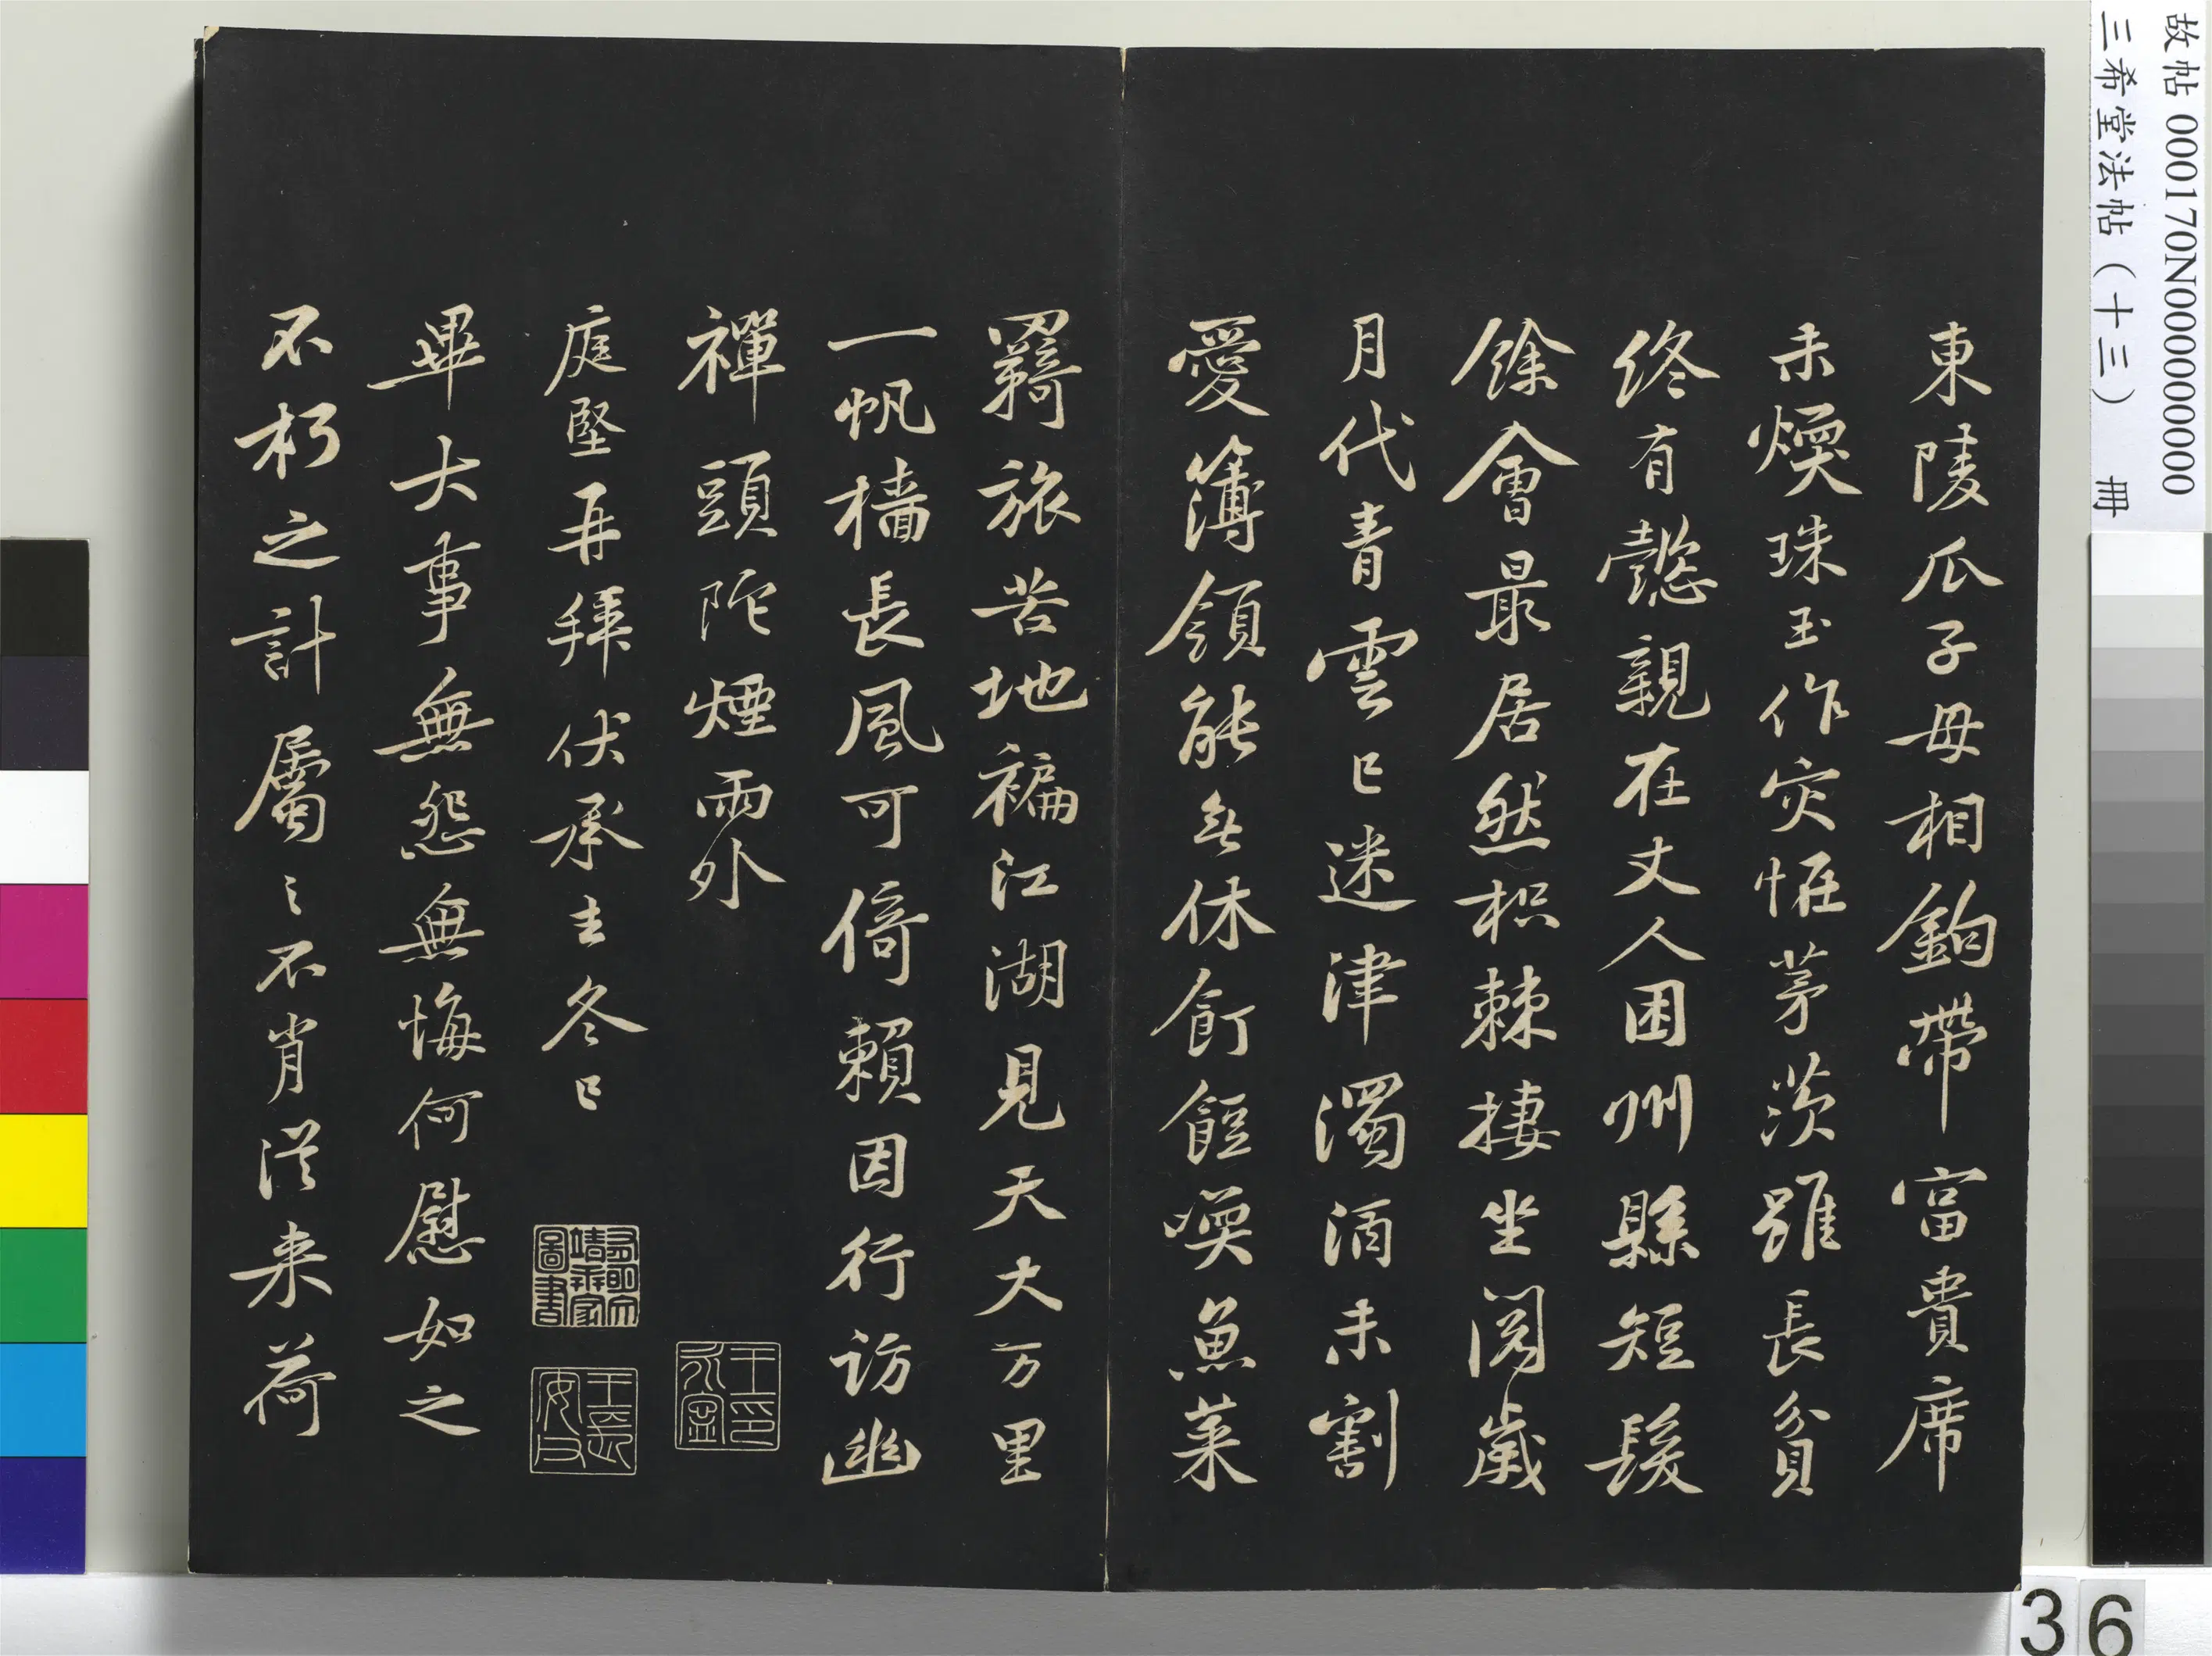 故帖 000170N000000000
三希堂法帖(十三) 冊
東陵瓜子母相鉤帶富貴席
未煗珠玉作灾惟茅茨雖長貧
終有懿親在丈人困州縣短髮
餘會最居然枳棘捿坐閱歲
月代青雲已迷津濁酒未割
愛簿領能無休飣餖喚魚菜
羇旅苦地褊江湖見天大万里
一帆檣長風可倚賴因行訪幽
禪頭陀煙雨外
庭堅再拜伏承去冬已
畢大事無怨無悔何慰如之
不朽之計屬之不肖從来荷
36